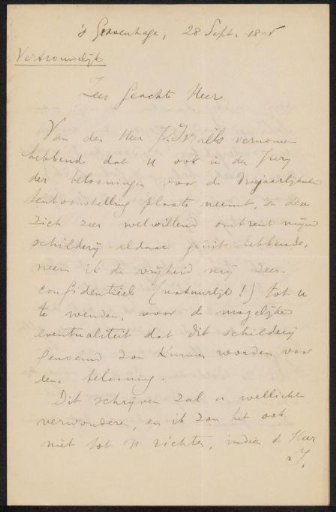 's Gravenhage, 28 Sept. 18
Vertrouwelijk
Zeer Geachte Heer
Van den Heer vernomen
hebbend dat u ook in de Jury
der belooningen voor de Driejaarlijksche
tentoonstelling plaats neemt, en deze
zich zeer welwillend omtrent mijn
schilderij aldaar geuit hebbende,
neem ik de vrijheid mij zeer
confidentieel (natuurlijk!) tot u
te wenden, voor de mogelijke
eventualiteit dat dit schilderij
genoemd zou kunnen worden voor
eene belooning.
Dit schrijven zal u wellicht
verwonderen, en ik zou het ook
niet tot u richten, indien de Heer